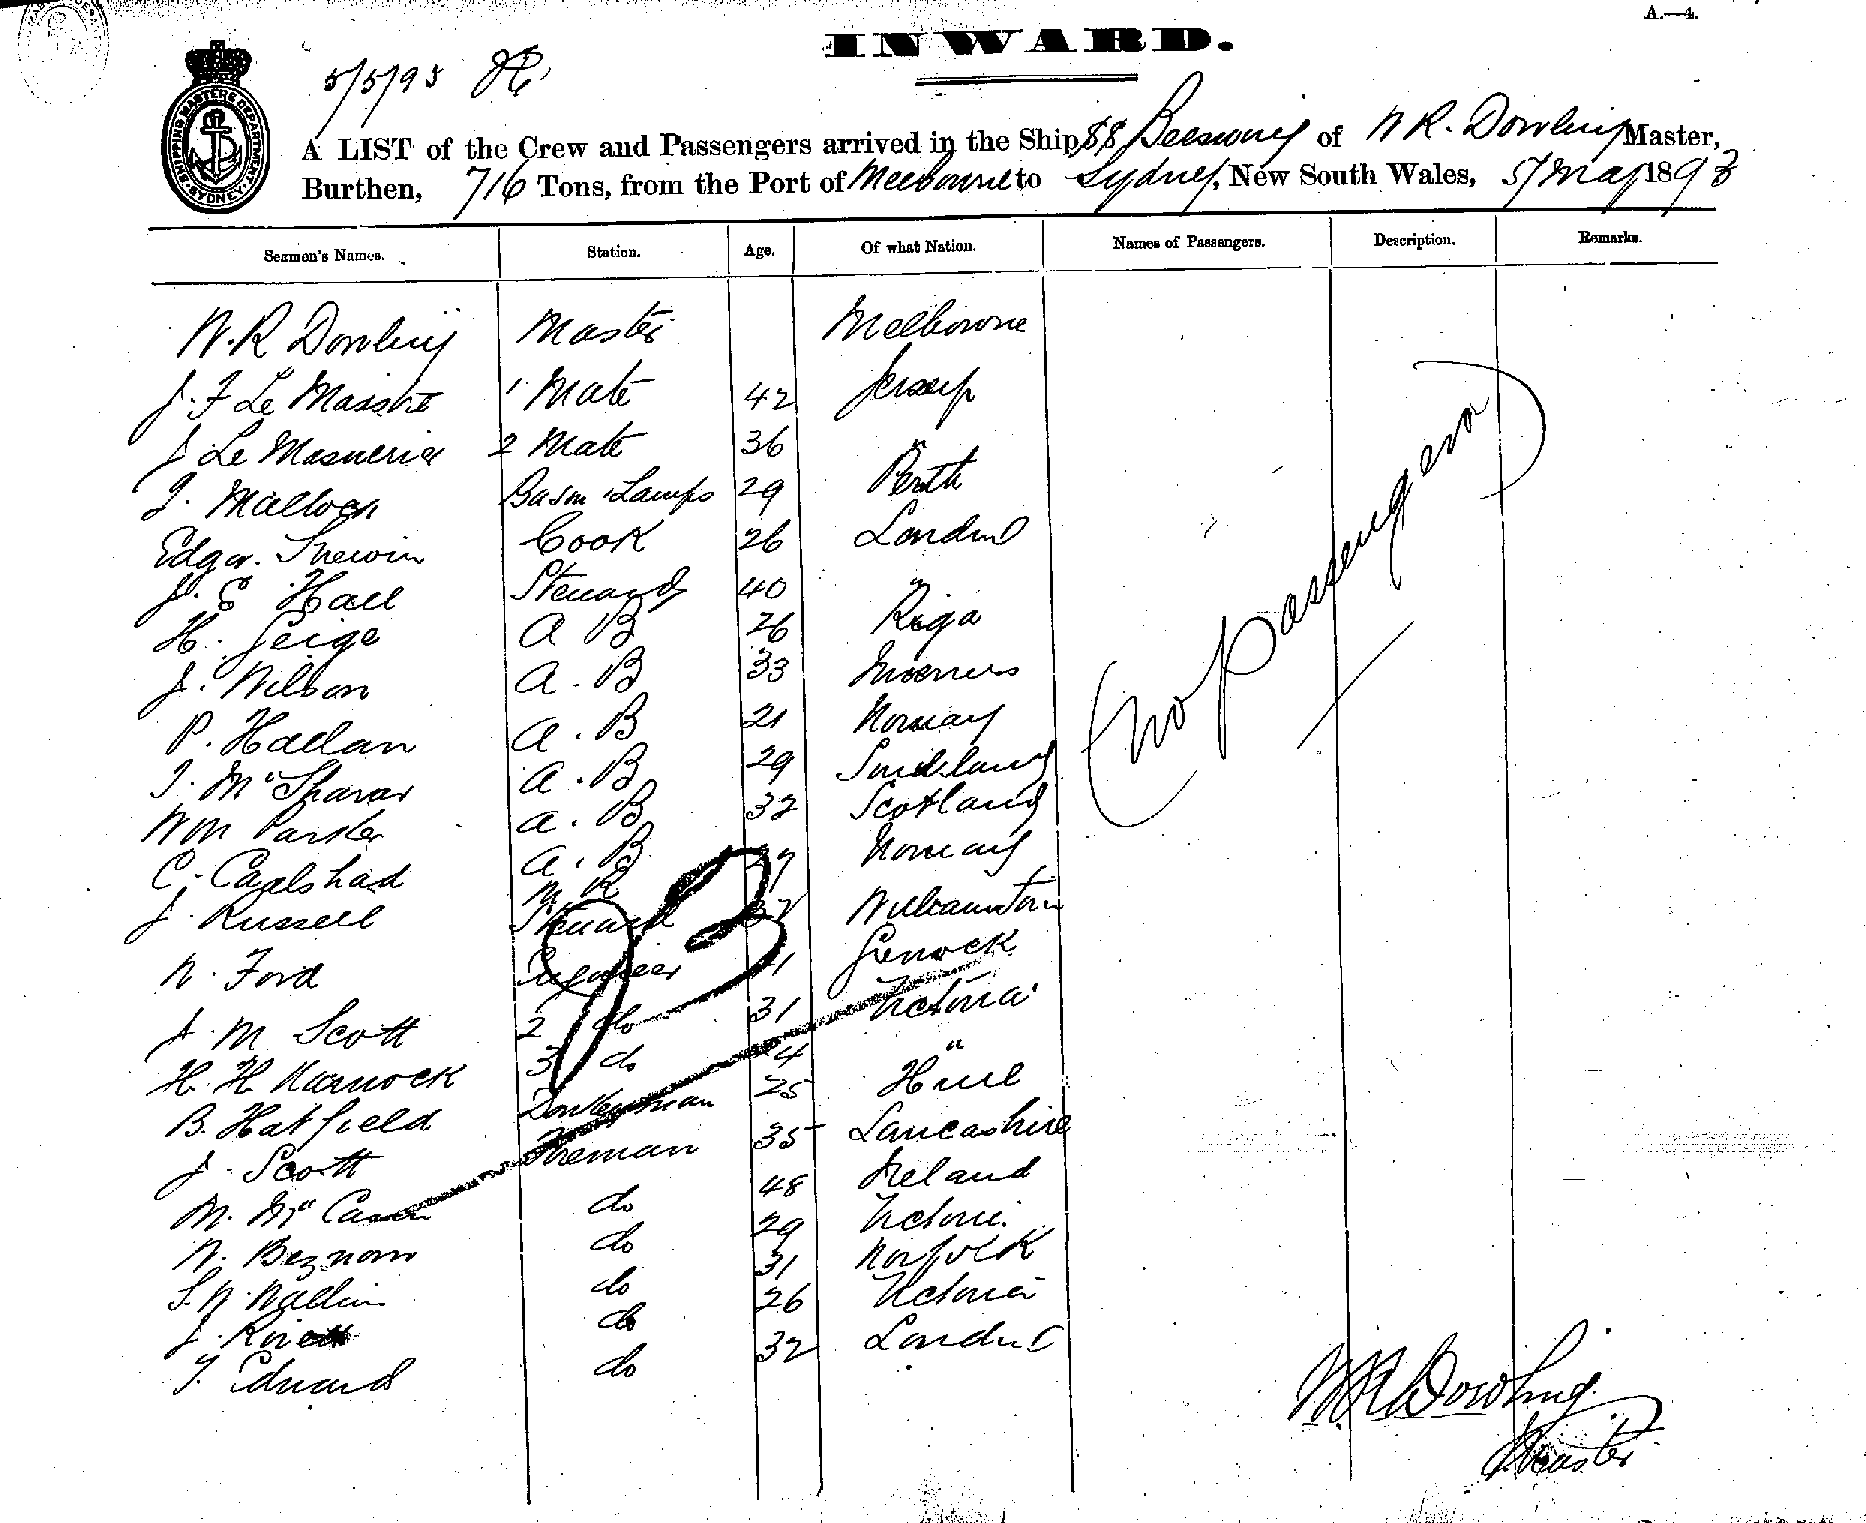 A.—4.
INWARD.
5/5/93
SHIPPING MASTERS DEPARTMENT SYDNEY
A LIST of the Crew and Passengers arrived in the Ship SS of W R. Dowling Master,
Burthen, 716 Tons, from the Port of Melbourne to Sydney, New South Wales, 5 May 1893
Seamen's Names. Station. Age. Of what Nation. Names of Passengers. Description. Remarks.
W. R Dowling Master Melbourne
J. F Le 1 Mate 42 Jersey
J Le 2 Mate 36
Malloch Lamps 29 Perth
Edgar Cook 26 London
J. E Hall Steward 40
H. A B 26 Riga
J. Wilson A. B 33 Inverness
P. A. B 21 Norway
A. B 29
Wm A. B 32 Scotland
C. Carlshad A. B Norway
J Russell Steward 32 Williamstown
W. Ford Engineer 41 Grenock
J. M Scott 2 do 31 Victoria
H. H 3 do 24 "
B. Hatfield Donkeyman 25 Hull
J. Scott Fireman 35 Lancashire
M. Mc do 48 Ireland
W. do 29 Victoria
do 31 Norfolk
J. do 26 Victoria
Edward do 32 London
(No Passengers)
93
W R Dowling
Master